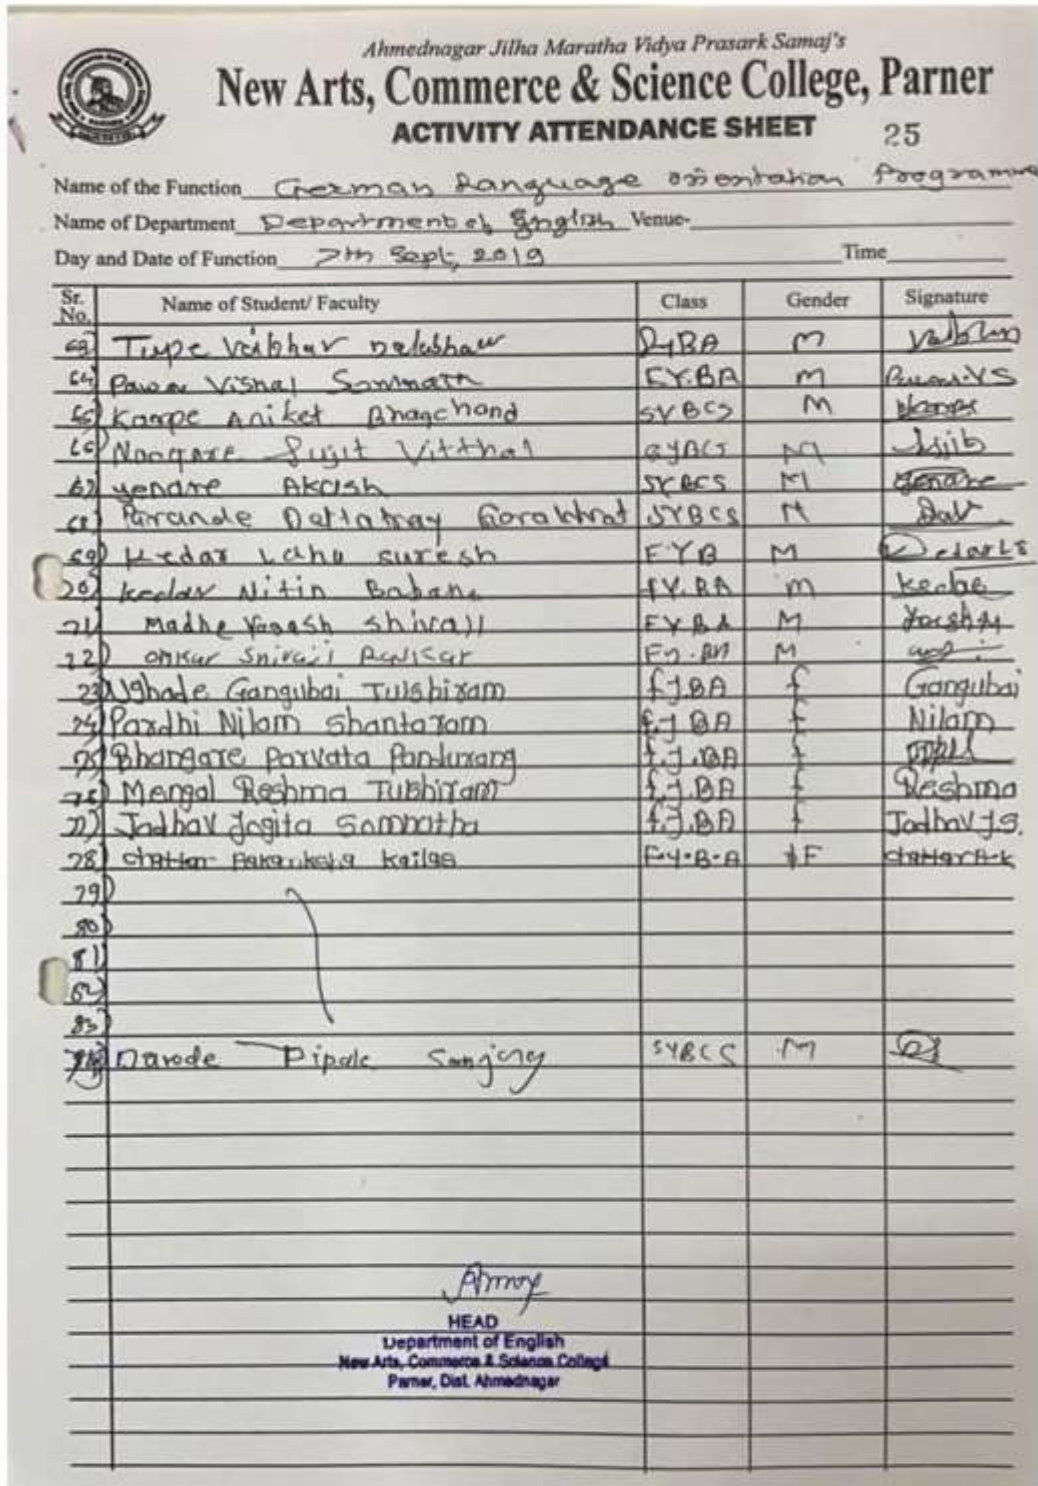 Ahmednagar Jilha Maratha Vidya Prasark Samaj's
New Arts, Commerce & Science College, Parner
ACTIVITY ATTENDANCE SHEET 25
Name of the Function German Language orientation Programme
Name of Department Department of English Venue-
Day and Date of Function 7th Sept, 2019 Time
Sr. No. Name of Student/ Faculty Class Gender Signature
63) Vaibhav M
64) Vishal F.Y.BA M
65) Karpe Aniket Bhagchand SYBCS M
66) Sujit Vitthal M Sujit
67) yenare Akash SYBCS M Yenare
68) Dattatray SYBCS M
69) Kedar Lahu suresh F.Y.B M
70) kedar Nitin Babana F.Y.BA m
71) Madhe shivaji F.Y BA M
72) omkar Shivaji M
73) Ughade Gangubai Tulshiram f.y.BA f Gangubai
74) Pardhi Nilam Shantaram f.y.BA f Nilam
75) Bhangare Parvata Pandurang f.y.BA f
76) Mengal Reshma Tulshiram f.y.BA f Reshma
77) Jadhav Jogita Sampatha f.y.BA f Jadhav J.S.
78) kailas F-Y-B-A F
79)
80)
81)
82)
83)
Darode Sanjay SYBCS M
HEAD
Department of English
New Arts, Commerce & Science College
Parner, Dist. Ahmednagar